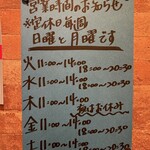 営業時間のお知らせ
定休日毎週
日曜と月曜です
火 11:00〜14:00
18:00〜20:30
水 11:00〜14:00
18:00〜20:30
木 11:00〜14:00
夜はお休み
金 11:00〜14:00
18:00〜20:30
土 11:00〜14:00
18:00〜20:30